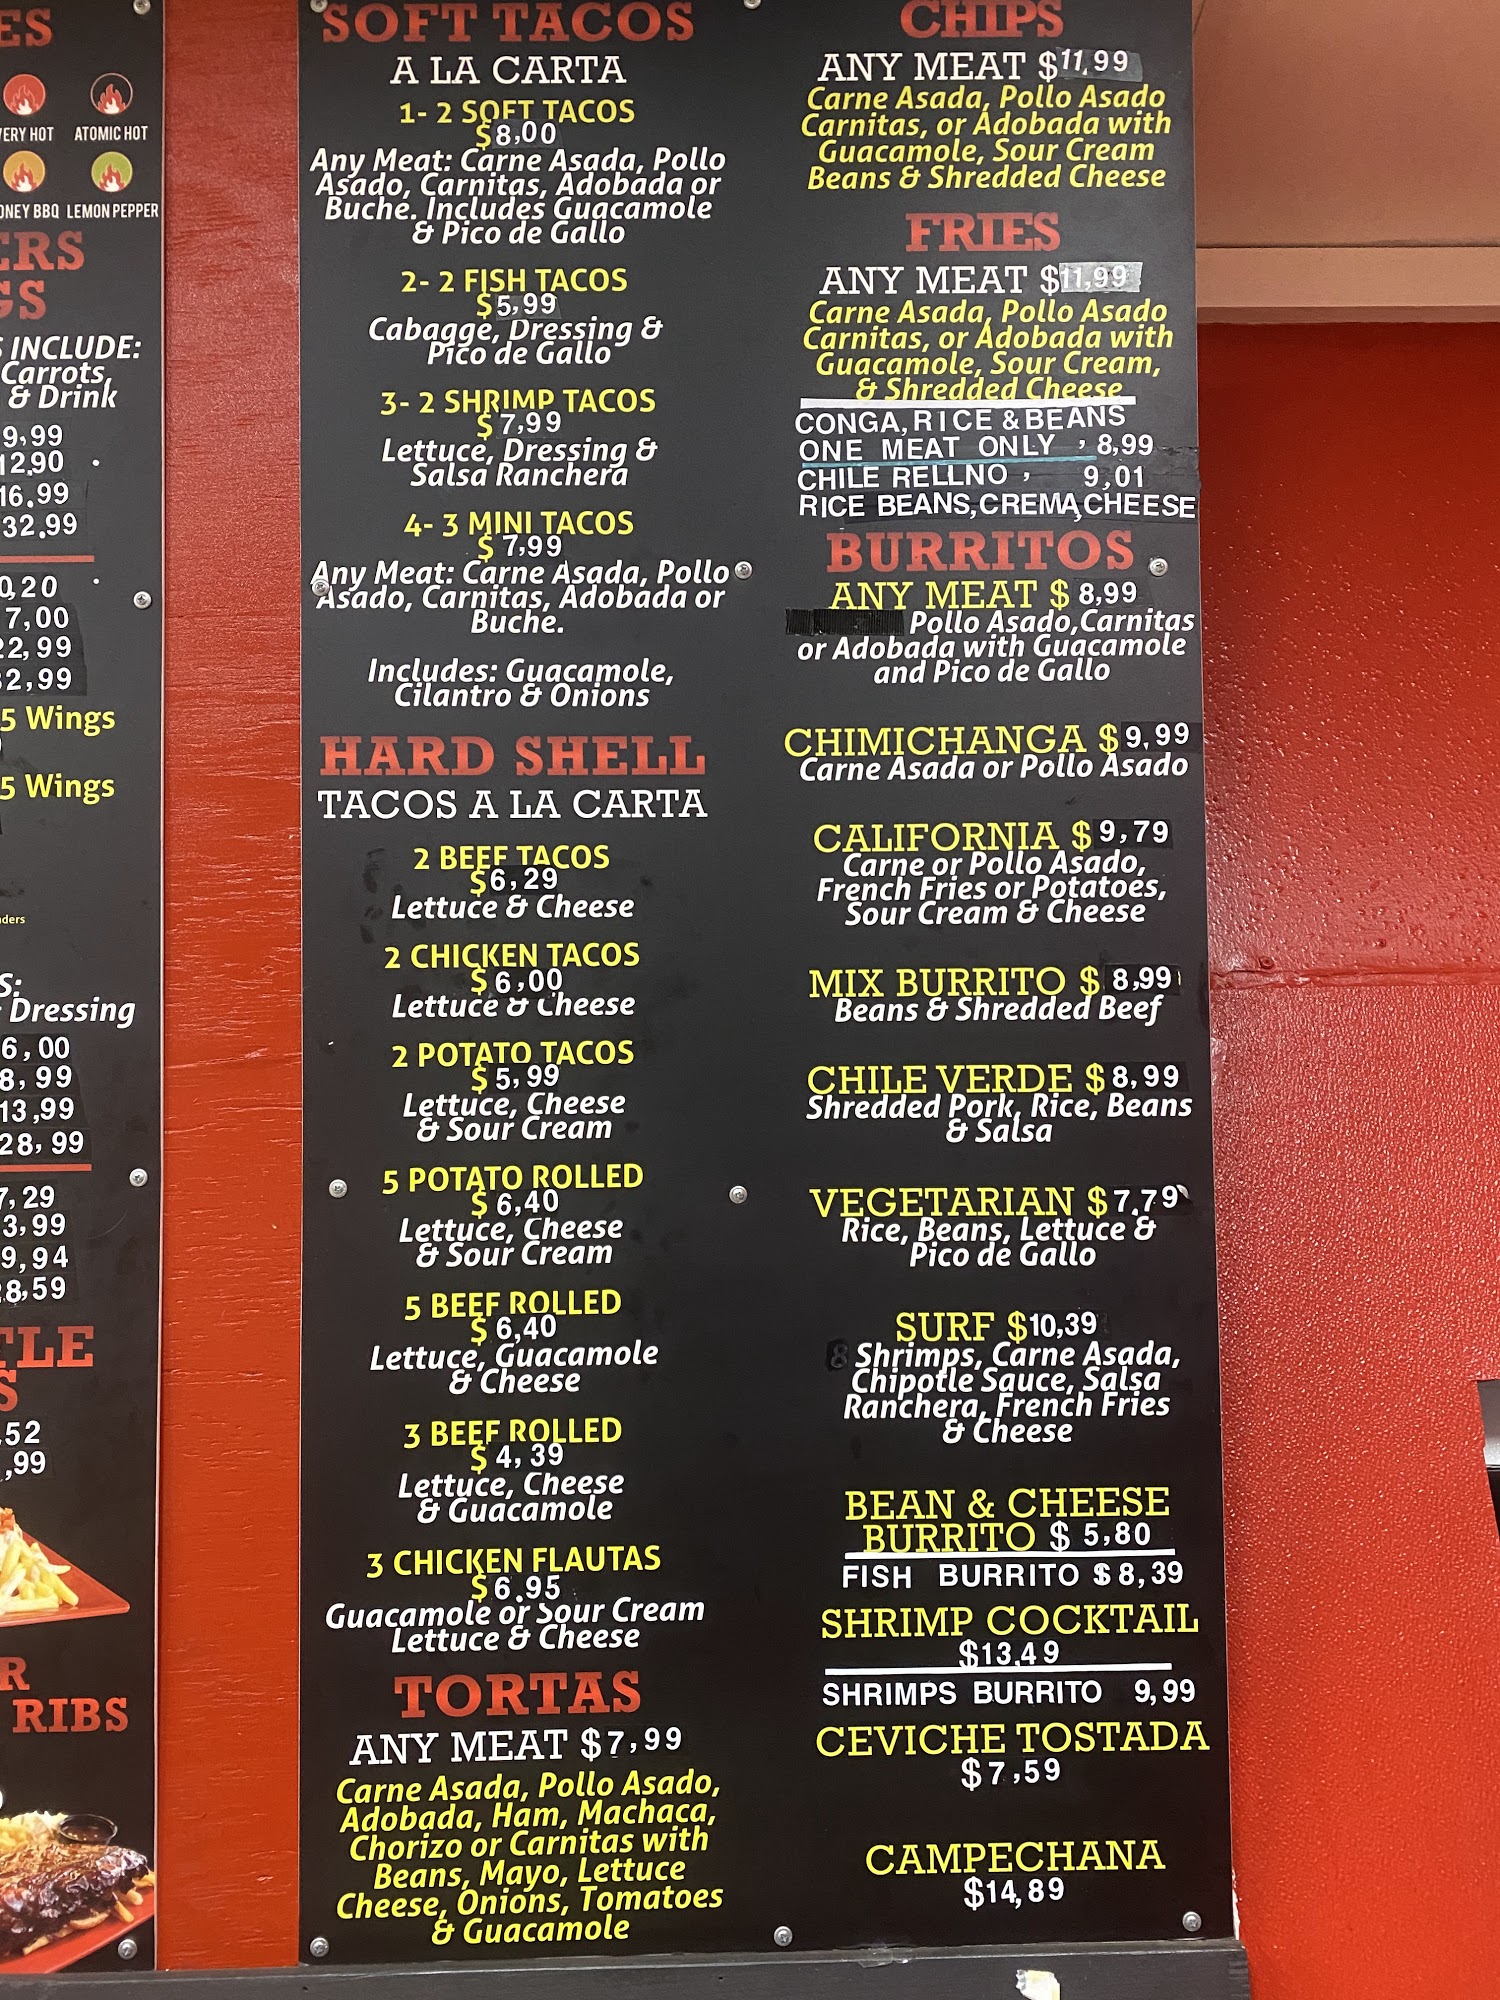 ES
VERY HOT
ATOMIC HOT
LEMON PEPPER
INCLUDE:
Carrots,
& Drink
5 Wings
5 Wings
Dressing
RIBS
SOFT TACOS
A LA CARTA
1- 2 SOFT TACOS
$8,00
Any Meat: Carne Asada, Pollo
Asado, Carnitas, Adobada or
Buche. Includes Guacamole
& Pico de Gallo
2- 2 FISH TACOS
$5,99
Cabagge, Dressing &
Pico de Gallo
3- 2 SHRIMP TACOS
$7,99
Lettuce, Dressing &
Salsa Ranchera
4- 3 MINI TACOS
$7,99
Any Meat: Carne Asada, Pollo
Asado, Carnitas, Adobada or
Buche.
Includes: Guacamole,
Cilantro & Onions
HARD SHELL
TACOS A LA CARTA
2 BEEF TACOS
$6,29
Lettuce & Cheese
2 CHICKEN TACOS
$6,00
Lettuce & Cheese
2 POTATO TACOS
$5,99
Lettuce, Cheese
& Sour Cream
5 POTATO ROLLED
$6,40
Lettuce, Cheese
& Sour Cream
5 BEEF ROLLED
$6,40
Lettuce, Guacamole
& Cheese
3 BEEF ROLLED
$4,39
Lettuce, Cheese
& Guacamole
3 CHICKEN FLAUTAS
$6.95
Guacamole or Sour Cream
Lettuce & Cheese
TORTAS
ANY MEAT $7,99
Carne Asada, Pollo Asado,
Adobada, Ham, Machaca,
Chorizo or Carnitas with
Beans, Mayo, Lettuce
Cheese, Onions, Tomatoes
& Guacamole
CHIPS
ANY MEAT $11,99
Carne Asada, Pollo Asado
Carnitas, or Adobada with
Guacamole, Sour Cream
Beans & Shredded Cheese
FRIES
ANY MEAT $11,99
Carne Asada, Pollo Asado
Carnitas, or Adobada with
Guacamole, Sour Cream,
& Shredded Cheese
CONGA, RICE & BEANS
ONE MEAT ONLY , 8,99
CHILE RELLNO , 9,01
RICE BEANS,CREMA,CHEESE
BURRITOS
ANY MEAT $8,99
Pollo Asado,Carnitas
or Adobada with Guacamole
and Pico de Gallo
CHIMICHANGA $9,99
Carne Asada or Pollo Asado
CALIFORNIA $9,79
Carne or Pollo Asado,
French Fries or Potatoes,
Sour Cream & Cheese
MIX BURRITO $8,99
Beans & Shredded Beef
CHILE VERDE $8,99
Shredded Pork, Rice, Beans
& Salsa
VEGETARIAN $7,79
Rice, Beans, Lettuce &
Pico de Gallo
SURF $10,39
8 Shrimps, Carne Asada,
Chipotle Sauce, Salsa
Ranchera, French Fries
& Cheese
BEAN & CHEESE
BURRITO $5,80
FISH BURRITO $8,39
SHRIMP COCKTAIL
$13,49
SHRIMPS BURRITO 9,99
CEVICHE TOSTADA
$7,59
CAMPECHANA
$14,89